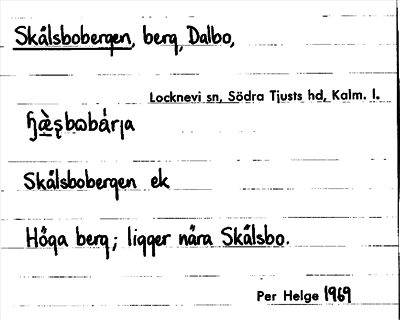 Skålsbobergen, berg, Dalbo,
Locknevi sn, Södra Tjusts hd, Kalm. l.
ɧæ̀ʂbɷbárja
Skålsbobergen ek
Höga berg; ligger nära Skålsbo.
Per Helge 1969